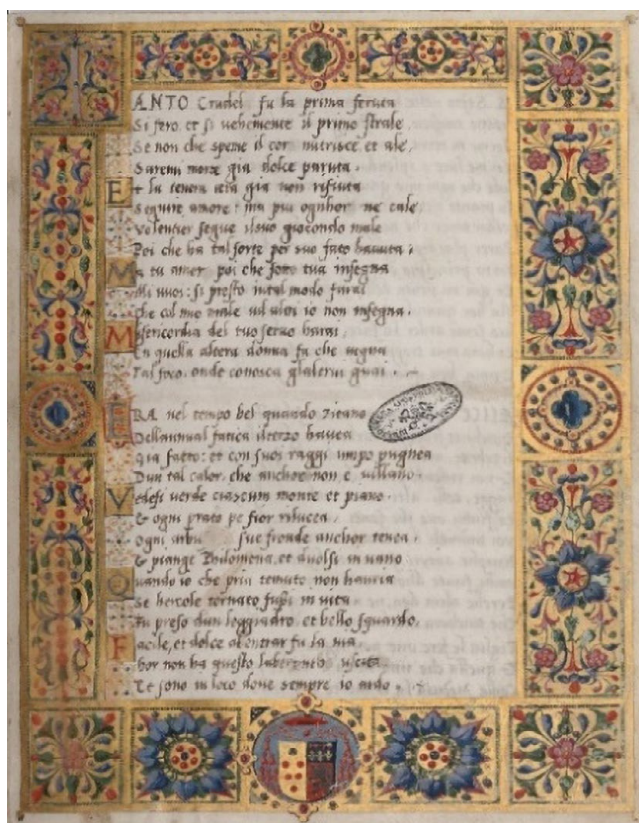 TANTO Crudel fu la prima feruta
Si fero et si vehemente il primo strale
Se non che speme il cor nutrisce et ale,
Saremi morte gia dolce paruta.
Et la tenera eta gia non rifiuta
Seguire amore: ma piu ognhor ne cale
Volentier segue il suo giocondo male
Poi che ha tal sorte per suo fato havuta.
Ma tu amor poi che sotto tua insegna
Mi vuoi: si presto in tal modo farai
Che col mio male ad altri io non insegna.
Misericordia del tuo servo harai,
En quella altera donna fa che regna
Tal foco, onde conosca glaltrui guai.
ERA nel tempo bel quando Titano
Dellannual fatica il terzo havea
Gia facto: et con suoi raggi un po pugnea
Dun tal calor, che anchor non e villano.
Vedesi verde ciascun monte et piano.
Et ogni prato pe fior rilucea.
Ogni arbu sue fronde anchor tenea.
Et piange Philomena, et duolsi in vano
Quando io che pria temuto non hauria
Se hercole tornato fussi in vita
Fu preso dun leggiadro, et bello sguardo.
Facile, et dolce al entrar fu la via.
Hor non ha questo laberinto uscita.
Et sono in loco dove sempre io ardo.